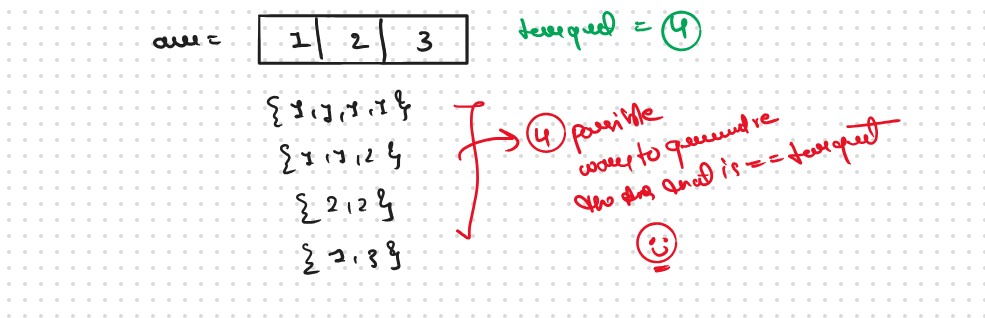 arr = 1 2 3
target = 4
{ 1, 1, 1, 1 }
{ 1, 1, 2 }
{ 2, 2 }
{ 1, 3 }
4 possible
ways to generate
the sum that is == target